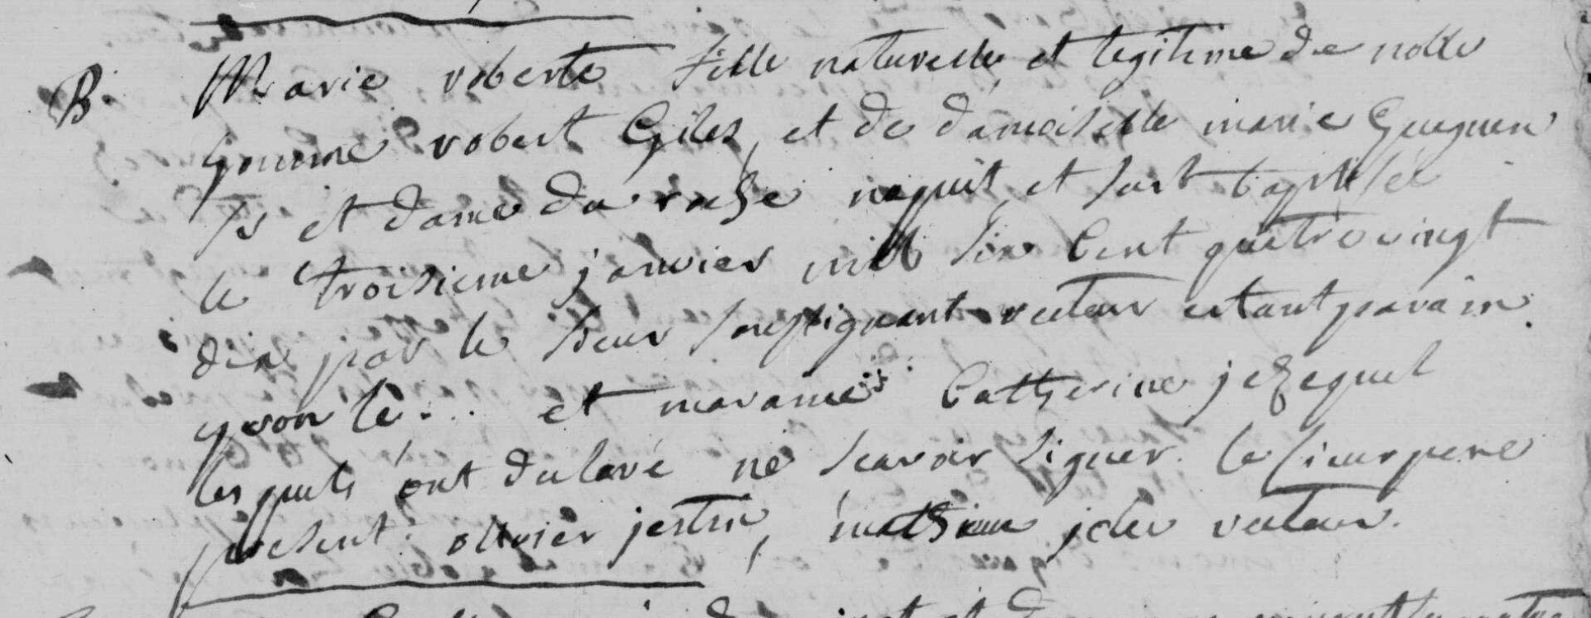 B. Marie roberte fille naturelle et legitime de noble
homme robert Gilles, et de damoiselle marie Gueguen
Sr et dame du naquit et fust baptisée
le troisieme janvier mill six Cent quatre vingt
dix par le sieur soussignant recteur estant parain
yvon le... et maraine Catherine jezequel
lesquels ont declaré ne scavoir signer. le sieur pere
present. ollivier jestin, mathieu recteur.